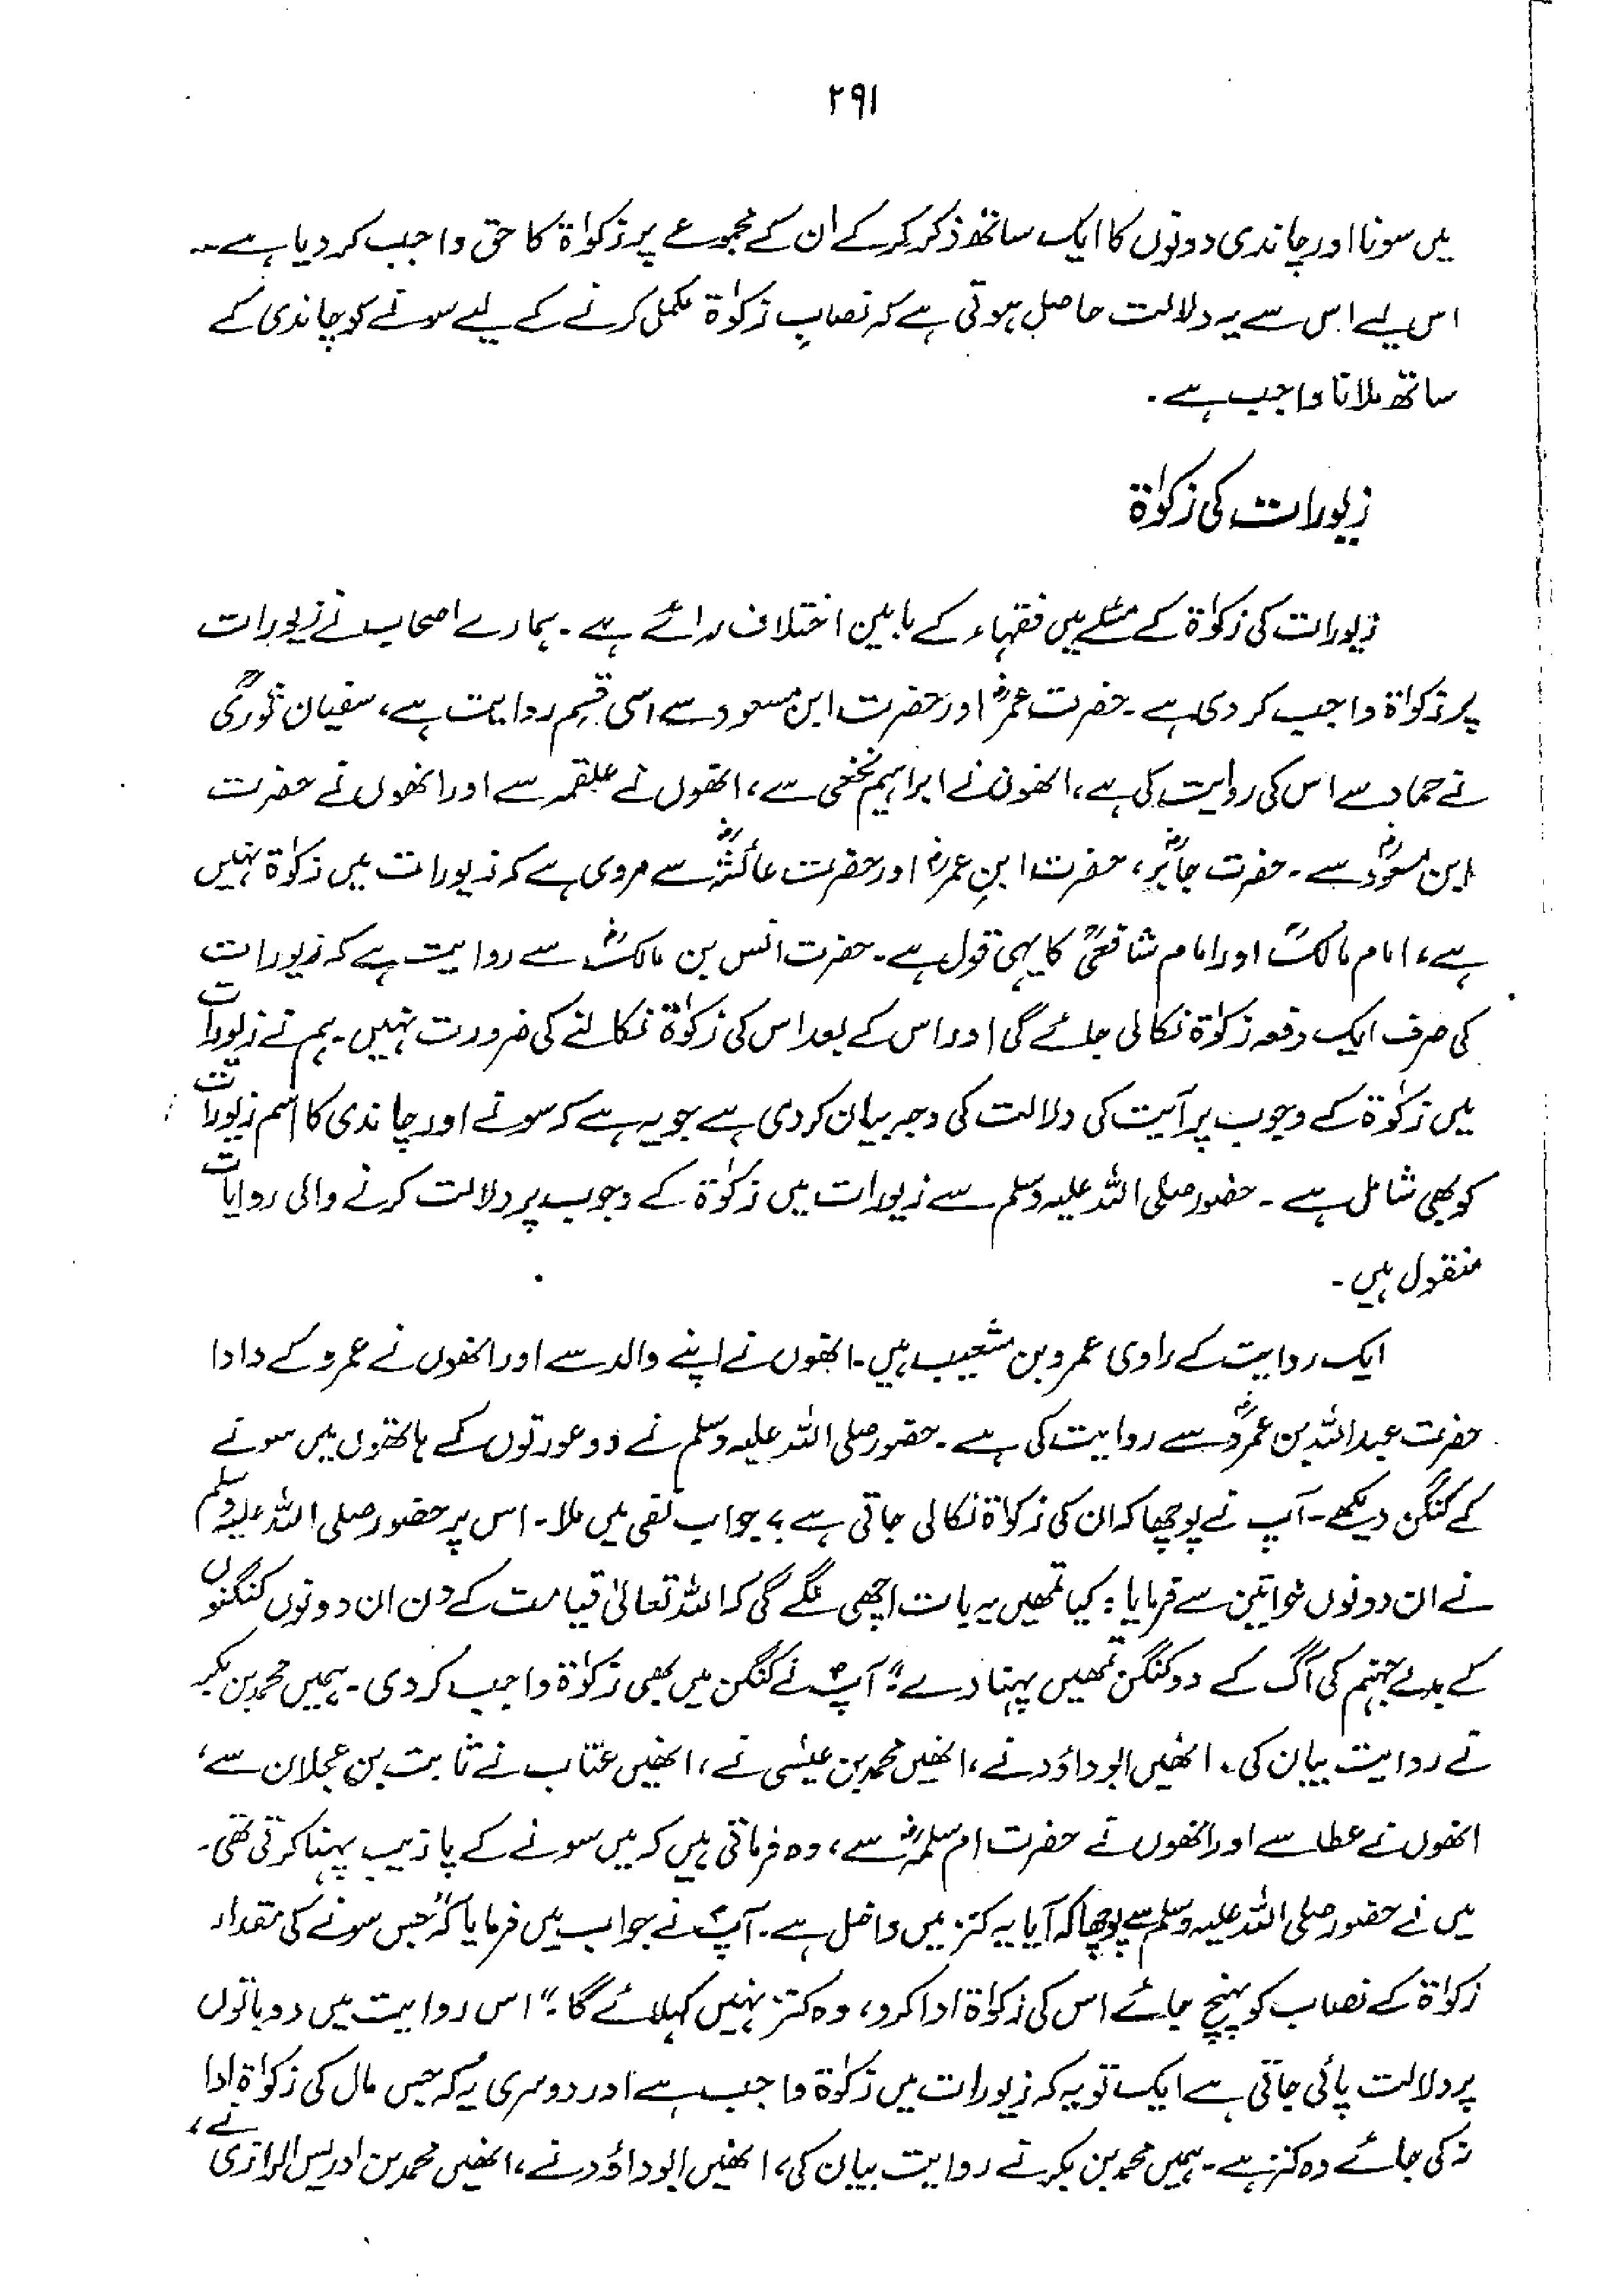 ۲۹۱
میں سونا اور چاندی دونوں کا ایک ساتھ ذکر کرکے ان کے مجموعے پر زکوٰۃ کا حق واجب کر دیا ہے۔
اس لیے اس سے یہ دلالت حاصل ہوتی ہے کہ نصابِ زکوٰۃ مکمل کرنے کے لیے سونے کو چاندی کے
ساتھ ملانا واجب ہے۔
زیورات کی زکوٰۃ
زیورات کی زکوٰۃ کے مسئلے میں فقہاء کے مابین اختلاف رائے ہے۔ ہمارے اصحاب نے زیورات
پر زکوٰۃ واجب کر دی ہے۔ حضرت عمرؓ اور حضرت ابن مسعود سے اسی قسم روایت ہے، سفیان ثوریؒ
نے حماد سے اس کی روایت کی ہے، انھوں نے ابراہیم نخعی سے، انھوں نے علقمہ سے اور انھوں نے حضرت
ابن مسعودؓ سے۔ حضرت جابرؓ، حضرت ابنِ عمرؓ اور حضرت عائشہؓ سے مروی ہے کہ زیورات میں زکوٰۃ نہیں
ہے، امام مالکؒ اور امام شافعیؒ کا یہی قول ہے۔ حضرت انس بن مالکؓ سے روایت ہے کہ زیورات
کی صرف ایک دفعہ زکوٰۃ نکالی جائے گی اور اس کے بعد اس کی زکوٰۃ نکالنے کی ضرورت نہیں۔ ہم نے زیورات
میں زکوٰۃ کے وجوب پر آیت کی دلالت کی وجہ بیان کر دی ہے جو یہ ہے کہ سونے اور چاندی کا اسم زیورات
کو بھی شامل ہے۔ حضور صلی اللہ علیہ وسلم سے زیورات میں زکوٰۃ کے وجوب پر دلالت کرنے والی روایات
منقول ہیں۔
ایک روایت کے راوی عمرو بن شعیب ہیں۔ انھوں نے اپنے والد سے اور انھوں نے عمرو کے دادا
حضرت عبداللہ بن عمروؓ سے روایت کی ہے۔ حضور صلی اللہ علیہ وسلم نے دو عورتوں کے ہاتھوں میں سونے
کے کنگن دیکھے۔ آپ نے پوچھا کہ ان کی زکوٰۃ نکالی جاتی ہے؟ جواب نفی میں ملا۔ اس پر حضور صلی اللہ علیہ وسلم
نے ان دونوں خواتین سے فرمایا: کیا تمھیں یہ بات اچھی لگے گی کہ اللہ تعالیٰ قیامت کے دن ان دونوں کنگنوں
کے بدلے جہنم کی آگ کے دو کنگن تمھیں پہنا دے" آپؐ نے کنگن میں بھی زکوٰۃ واجب کر دی۔ ہمیں محمد بن بکر
نے روایت بیان کی۔ انھیں ابوداؤد نے، انھیں محمد بن عیسٰی نے، انھیں عتاب نے ثابت بن عجلان سے،
انھوں نے عطا سے اور انھوں نے حضرت ام سلمہؓ سے، وہ فرماتی ہیں کہ میں سونے کے پازیب پہنا کرتی تھی۔
میں نے حضور صلی اللہ علیہ وسلم سے پوچھا کہ آیا یہ کنز میں داخل ہے۔ آپؐ نے جواب میں فرمایا کہ "جس سونے کی مقدار
زکوٰۃ کے نصاب کو پہنچ جائے اس کی زکوٰۃ ادا کرو، وہ کنز نہیں کہلائے گا۔" اس روایت میں دو باتوں
پر دلالت پائی جاتی ہے ایک تو یہ کہ زیورات میں زکوٰۃ واجب ہے اور دوسری یہ کہ جس مال کی زکوٰۃ ادا
نہ کی جائے وہ کنز ہے۔ ہمیں محمد بن بکر نے روایت بیان کی، انھیں ابوداؤد نے، انھیں محمد بن ادریس الرازی نے،